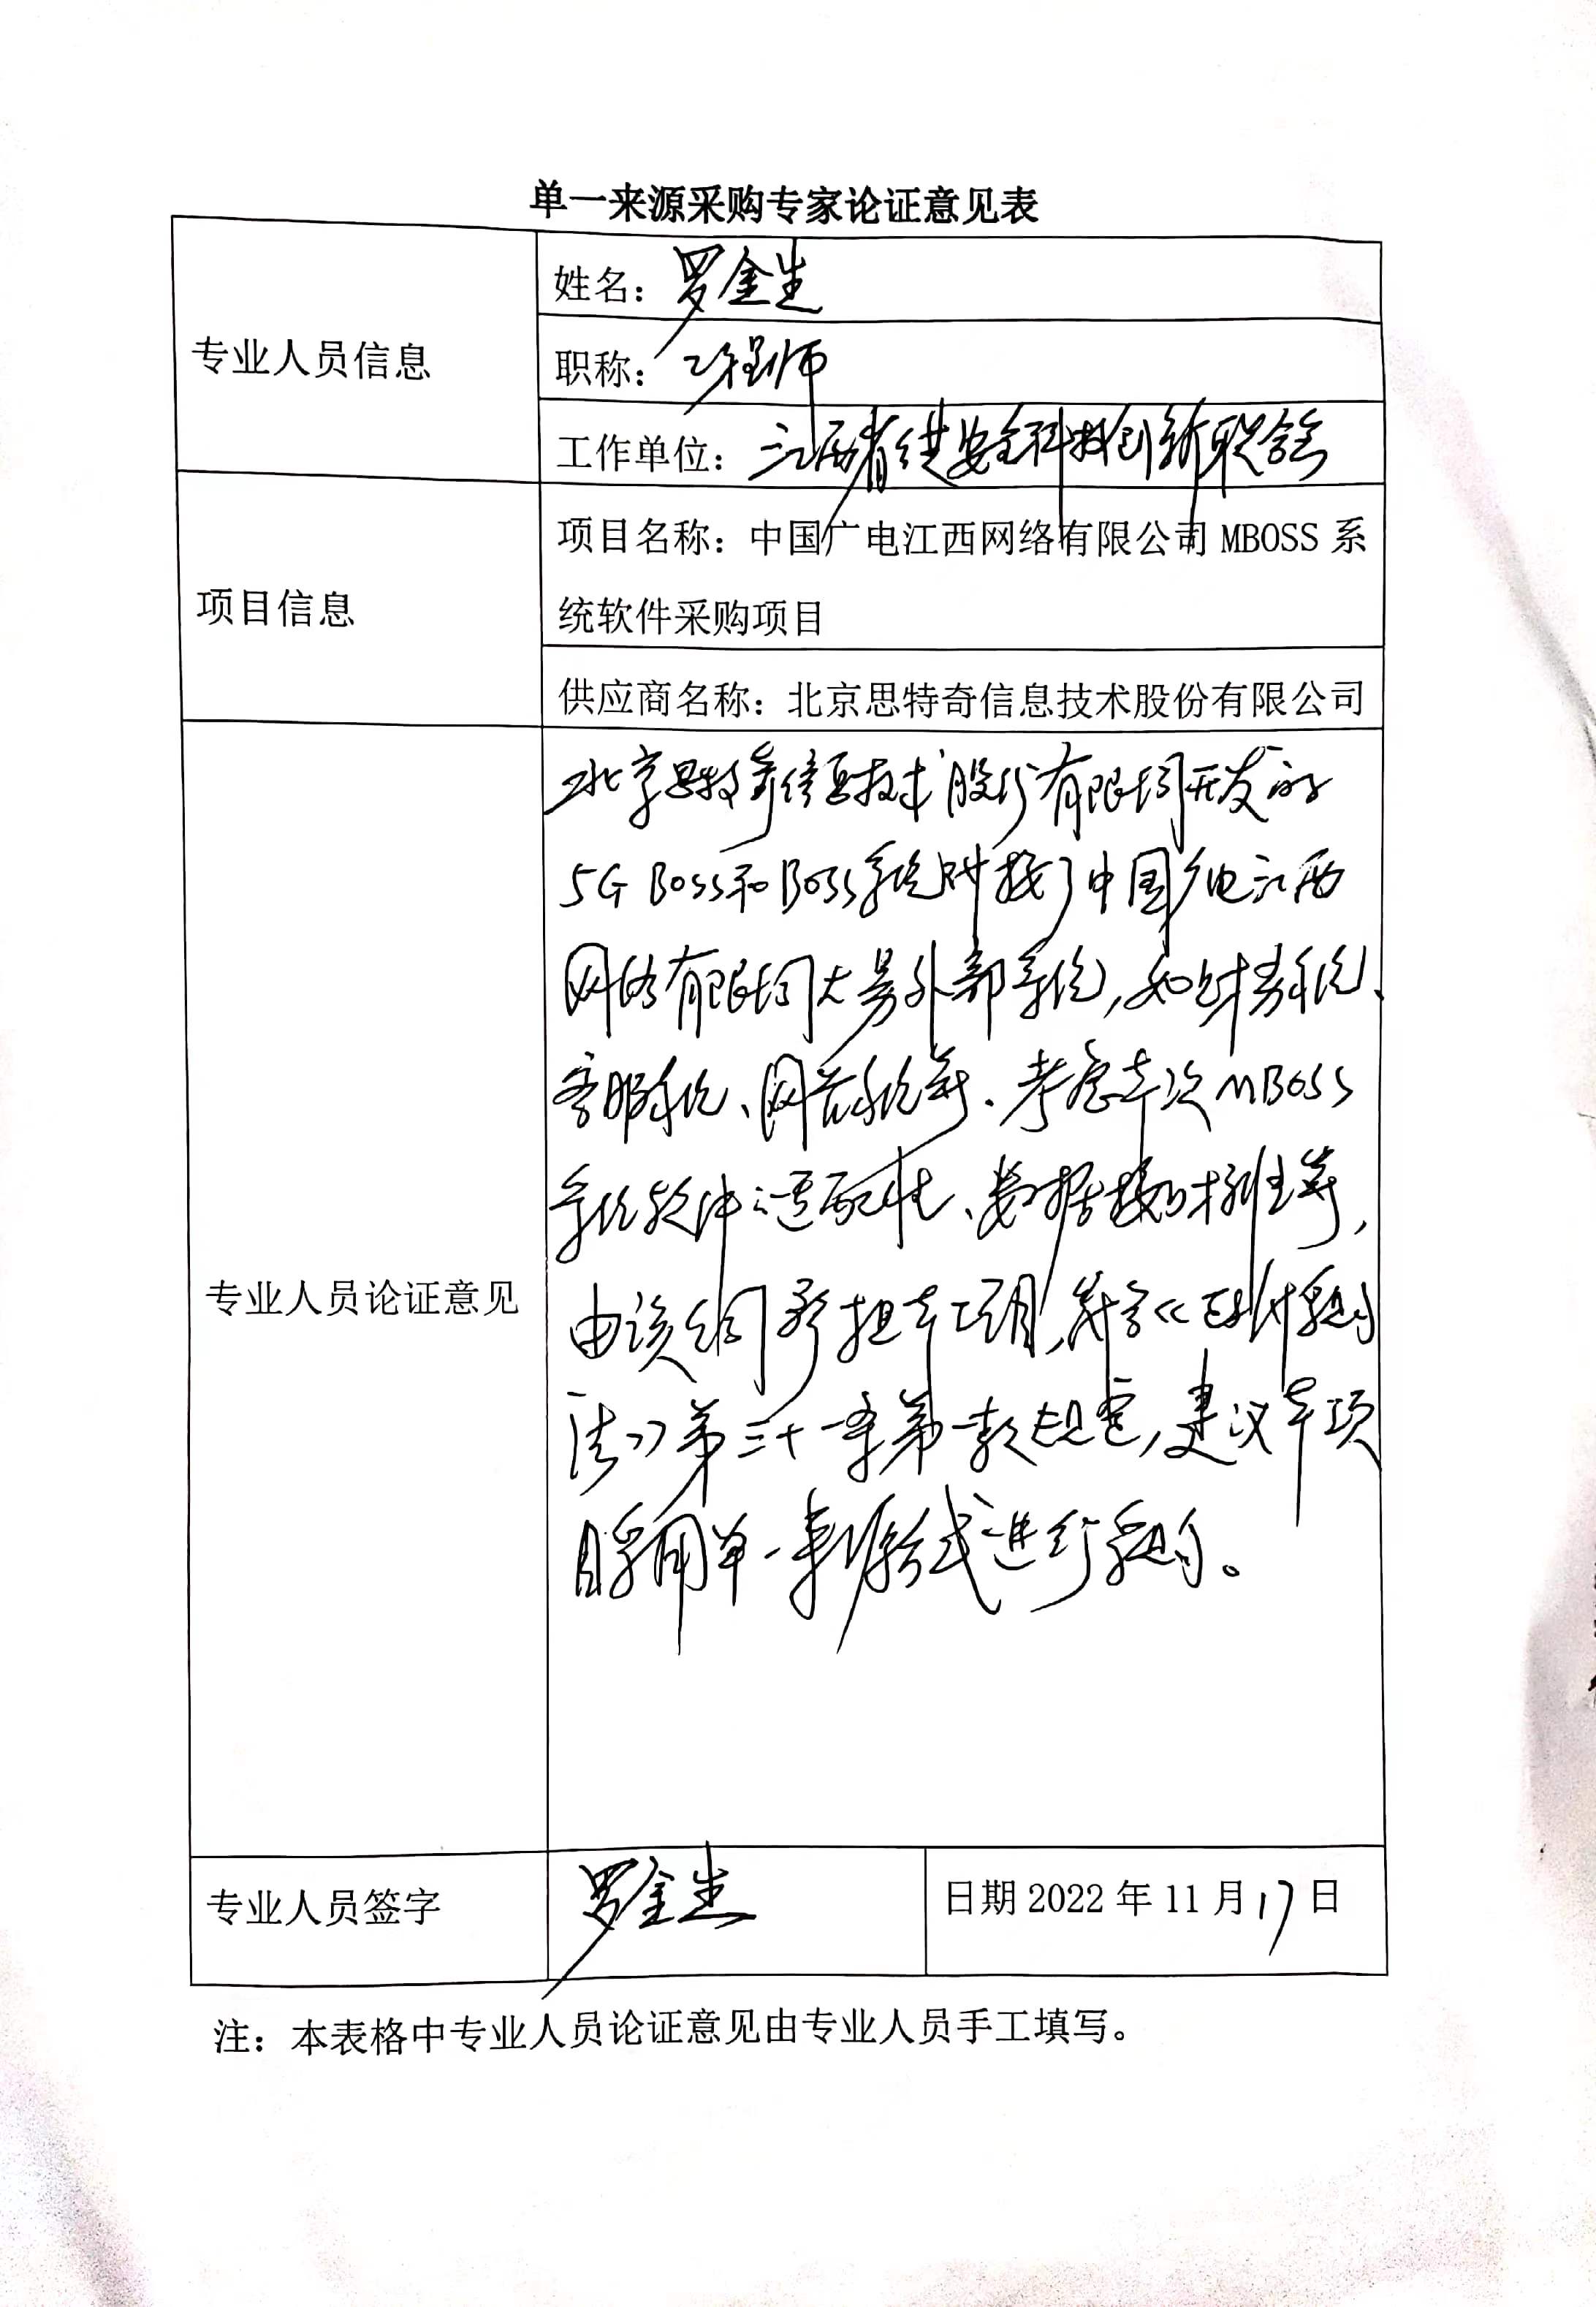 单一来源采购专家论证意见表
专业人员信息
姓名：罗金生
职称：工程师
工作单位：江西省信息安全科技创新联合会
项目信息
项目名称：中国广电江西网络有限公司 MBOSS 系
统软件采购项目
供应商名称：北京思特奇信息技术股份有限公司
专业人员论证意见
北京思特奇信息技术股份有限公司开发的
5G Boss和Boss系统对接了中国广电江西
网络有限公司大量外部系统，如财务系统、
客服系统、网管系统等。考虑本次MBOSS
系统软件适配性、数据接口标准等，
由该公司承担本项目，符合《政府采购
法》第三十一条第一款规定，建议本项
目采用单一来源方式进行采购。
专业人员签字
罗金生
日期 2022 年 11 月 17 日
注：本表格中专业人员论证意见由专业人员手工填写。